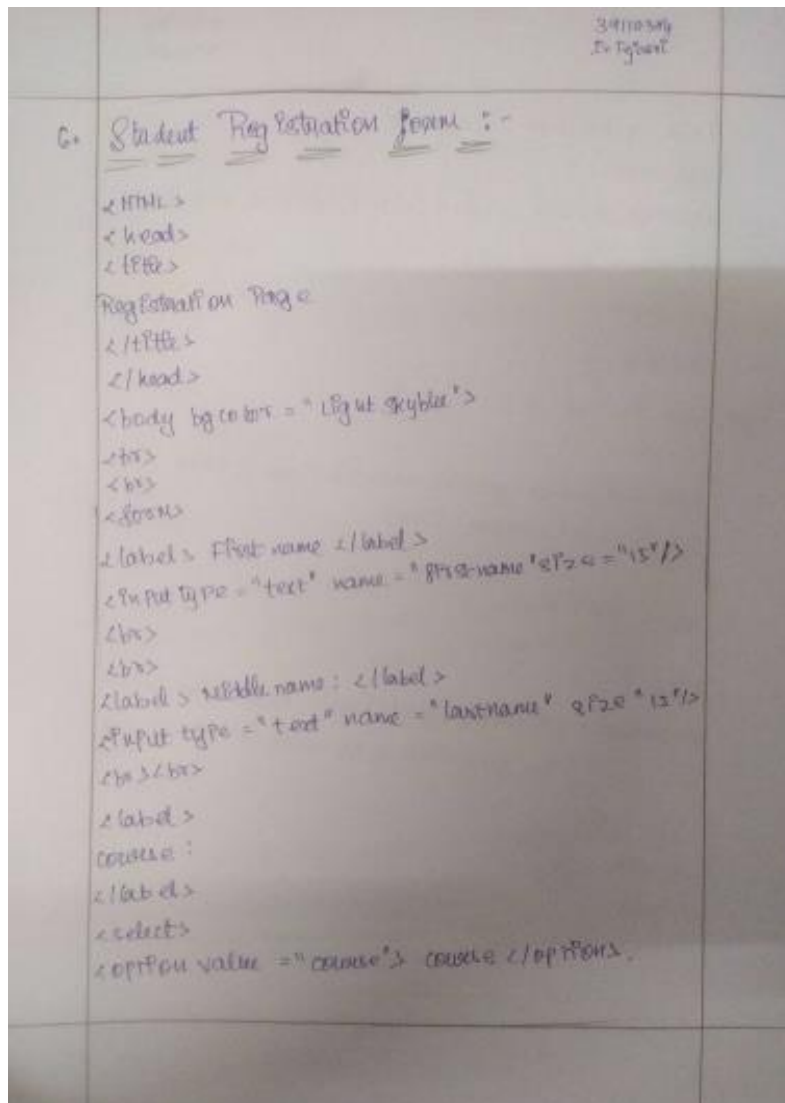 39110394
6. Student Registration form :-
<HTML>
<head>
<title>
Registration Page
</title>
</head>
<body bgcolor = "Light skyblue">
<br>
<br>
<form>
<label> First name </label>
<input type = "text" name = "first-name" size = "15"/>
<br>
<br>
<label> Middle name: </label>
<input type = "text" name = "lastname" size "15"/>
<br><br>
<label>
course :
</label>
<select>
<option value = "course"> course </option>.